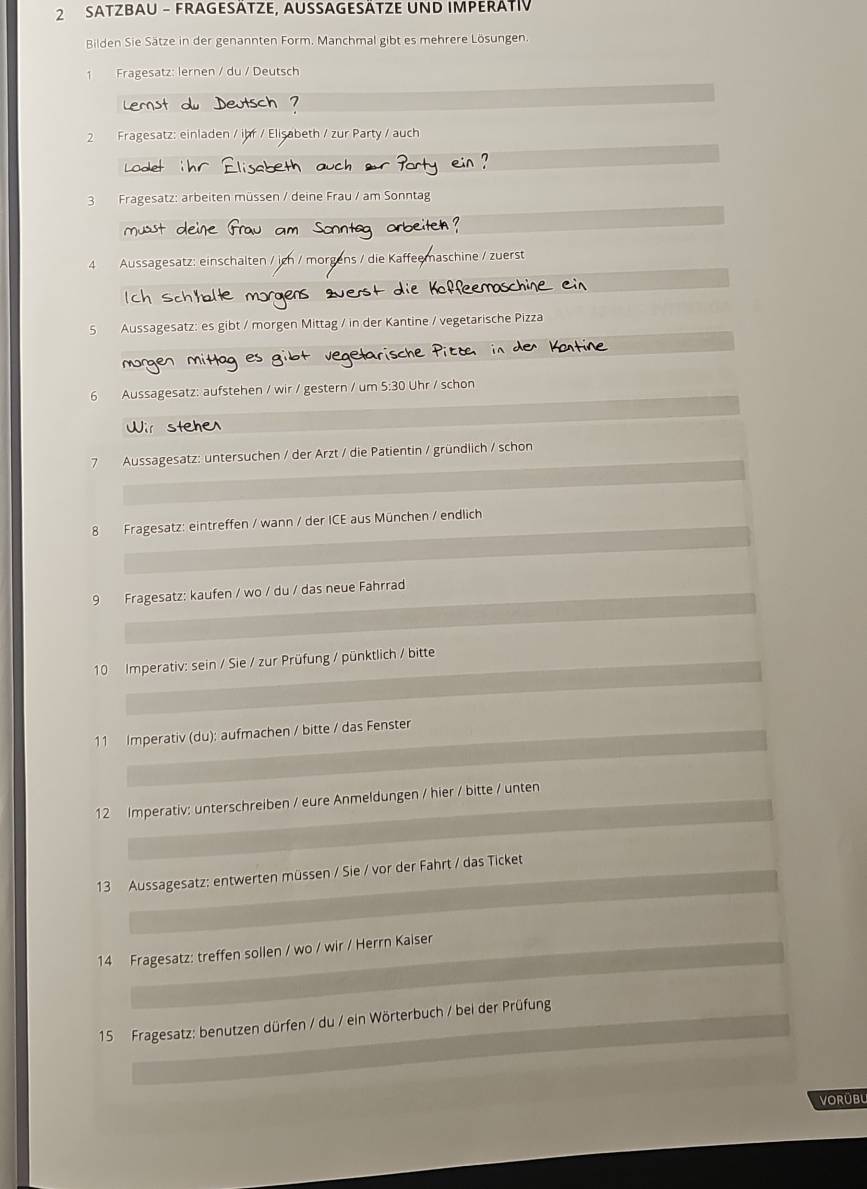 2 SATZBAU – FRAGESÄTZE, AUSSAGESÄTZE UND IMPERATIV
Bilden Sie Sätze in der genannten Form. Manchmal gibt es mehrere Lösungen.
1 Fragesatz: lernen / du / Deutsch
Lernst du Deutsch ?
2 Fragesatz: einladen / ihr / Elisabeth / zur Party / auch
Ladet ihr Elisabeth auch zur Party ein ?
3 Fragesatz: arbeiten müssen / deine Frau / am Sonntag
musst deine Frau am Sonntag arbeiten ?
4 Aussagesatz: einschalten / ich / morgens / die Kaffeemaschine / zuerst
Ich schhalte morgens zuerst die Kaffeemaschine ein
5 Aussagesatz: es gibt / morgen Mittag / in der Kantine / vegetarische Pizza
morgen mittag es gibt vegetarische Pizza in der Kantine
6 Aussagesatz: aufstehen / wir / gestern / um 5:30 Uhr / schon
Wir stehen
7 Aussagesatz: untersuchen / der Arzt / die Patientin / gründlich / schon
8 Fragesatz: eintreffen / wann / der ICE aus München / endlich
9 Fragesatz: kaufen / wo / du / das neue Fahrrad
10 Imperativ: sein / Sie / zur Prüfung / pünktlich / bitte
11 Imperativ (du): aufmachen / bitte / das Fenster
12 Imperativ: unterschreiben / eure Anmeldungen / hier / bitte / unten
13 Aussagesatz: entwerten müssen / Sie / vor der Fahrt / das Ticket
14 Fragesatz: treffen sollen / wo / wir / Herrn Kaiser
15 Fragesatz: benutzen dürfen / du / ein Wörterbuch / bei der Prüfung
VORÜBU